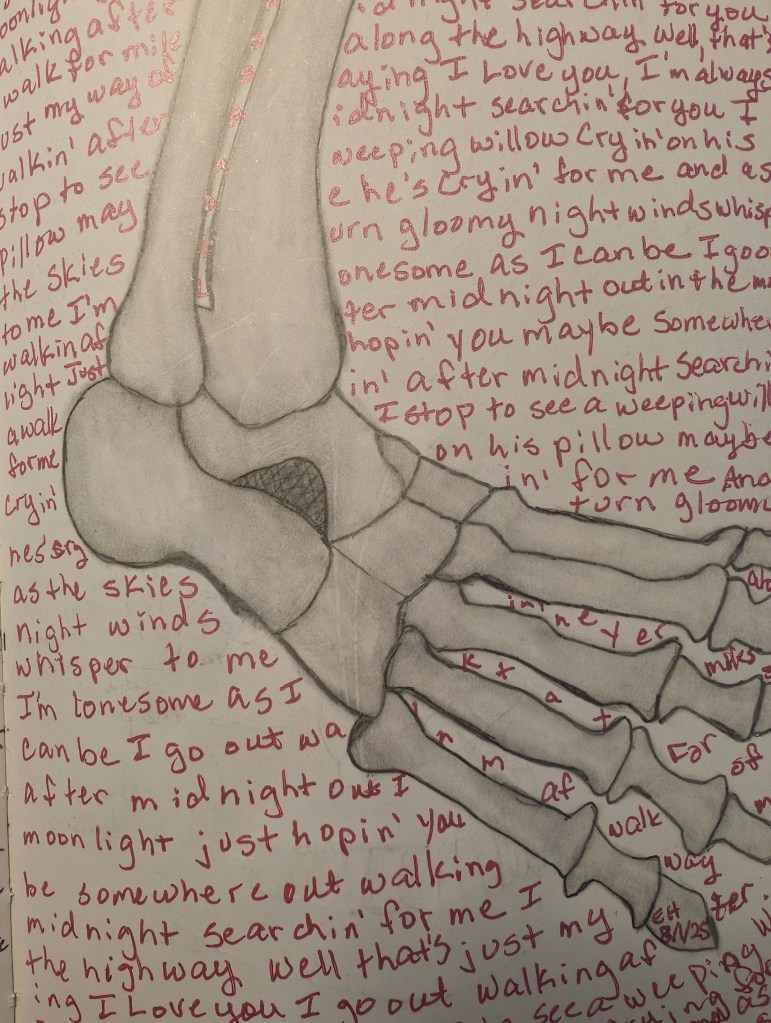 oonlig
alking after
walk for mile
ust my way of
walkin' after
stop to see
pillow may
the skies
to me I'm
walkin af
light Just
a walk
for me
cryin'
as the skies
night winds
whisper to me
I'm lonesome as I
can be I go out wa
after midnight out I
moonlight just hopin' you
be somewhere out walking
midnight searchin' for me I
the highway well that's just my
ing I Love you I go out walking af
to see a weeping w
idnight searchin for you
along the highway well, that's
aying I Love you, I'm always
idnight searchin' for you I
weeping willow Cryin' on his
e he's Cryin' for me and as
urn gloomy night winds whisp
onesome as I can be I goo
ter midnight out in the mo
hopin' you maybe somewhe
in' after midnight Searchi
I stop to see a weeping will
on his pillow maybe
in' for me And
turn gloom
miles
For of
af
walk
way
ter
EH
8/1/25